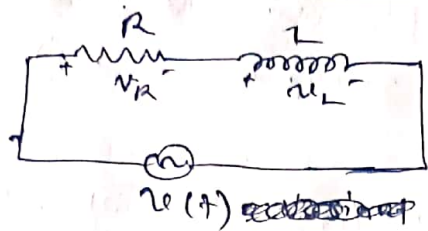 R L
+ - + -
v_R v_L
v(t)